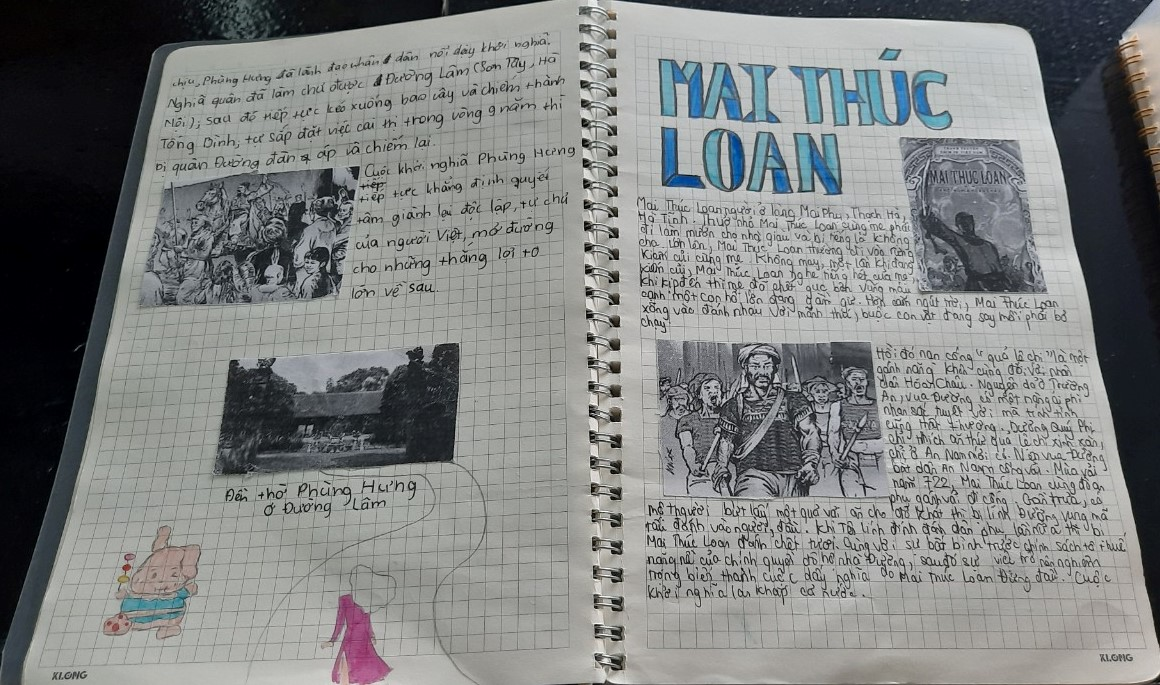 chịu, Phùng Hưng đã lãnh đạo nhân dân nổi dậy khởi nghĩa.
Nghĩa quân đã làm chủ được Đường Lâm (Sơn Tây, Hà
Nội); sau đó tiếp tục kéo xuống bao vây và chiếm thành
Tống Bình, tự sắp đặt việc cai trị trong vòng 9 năm thì
bị quân Đường đàn áp và chiếm lại.
Cuộc khởi nghĩa Phùng Hưng
tiếp tục khẳng định quyết
tâm giành lại độc lập, tự chủ
của người Việt, mở đường
cho những thắng lợi to
lớn về sau.
Đền thờ Phùng Hưng
ở Đường Lâm
KLONG
MAI THÚC
LOAN
MAI THÚC LOAN
Mai Thúc Loan người ở làng Mai Phụ, Thạch Hà,
Hà Tĩnh. Thuở nhỏ Mai Thúc Loan cùng mẹ phải
đi làm mướn cho nhà giàu và bị tiếng là không
cha. Lớn lên, Mai Thúc Loan thường đi vào rừng
kiếm củi cùng mẹ. Không may, một lần khi đang
kiếm củi, Mai Thúc Loan nghe tiếng hét của mẹ
khi kịp đến thì mẹ đã chết gục bên vũng máu
cạnh một con hổ lớn đang gầm gừ. Hờn căm ngút trời, Mai Thúc Loan
xông vào đánh nhau với mãnh thú, buộc con vật đang say mồi phải bỏ
chạy!
Hồi đó nạn cống "quả lệ chi" là một
gánh nặng khôn cùng đối với nhân
dân Hoan Châu. Nguyên do ở Trường
An, vua Đường có một nàng ái phi
nhan sắc tuyệt vời mà tính tình
cũng thất thường. Dương Quý Phi
chỉ thích ăn thứ quả lệ chi xinh xắn,
chỉ ở An Nam mới có. Nên vua Đường
bắt dân An Nam cống vải. Mùa vải
năm 722, Mai Thúc Loan cùng đoàn
phu gánh vải đi cống. Gần trưa, có
một người bứt lấy một quả vải ăn cho đỡ khát thì bị lính Đường vung mã
tấu đánh vào người, đầu. Khi tên lính định đánh dân phu lần nữa thì bị
Mai Thúc Loan đánh chết tươi. Cùng với sự bất bình trước chính sách tô thuế
nặng nề của chính quyền đô hộ nhà Đường, sau đó sự việc trở nên nghiêm
trọng biến thành cuộc dấy nghĩa do Mai Thúc Loan đứng đầu. Cuộc
khởi nghĩa lan khắp cả nước.
KLONG